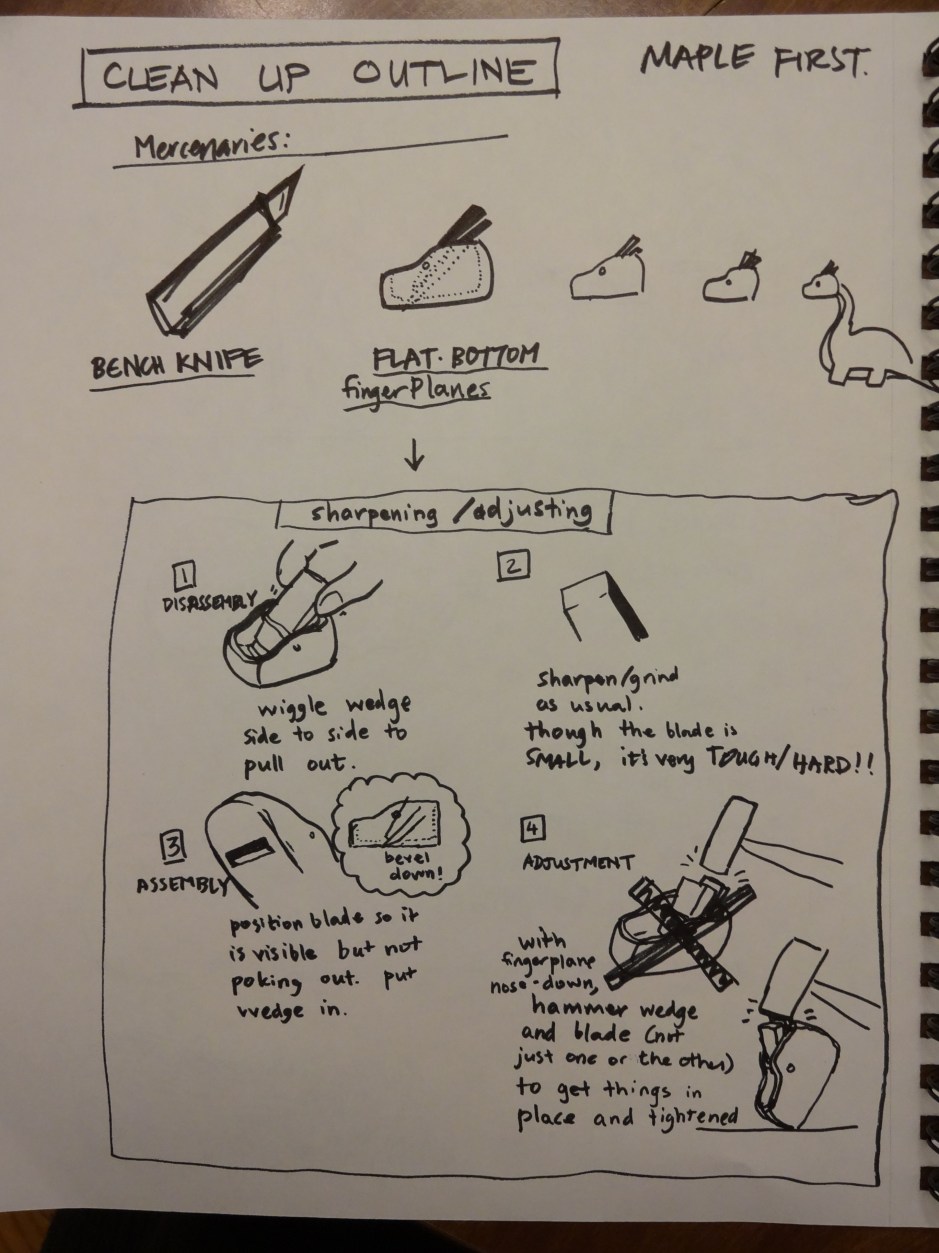 CLEAN UP OUTLINE
MAPLE FIRST.
Mercenaries:
BENCH KNIFE
FLAT·BOTTOM
fingerPlanes
sharpening/adjusting
1
DISASSEMBLY
wiggle wedge
side to side to
pull out.
2
sharpen/grind
as usual.
though the blade is
SMALL, it's very TOUGH/HARD!!
3
ASSEMBLY
bevel
down!
position blade so it
is visible but not
poking out. put
wedge in.
4
ADJUSTMENT
with
fingerplane
nose-down,
hammer wedge
and blade (not
just one or the other)
to get things in
place and tightened